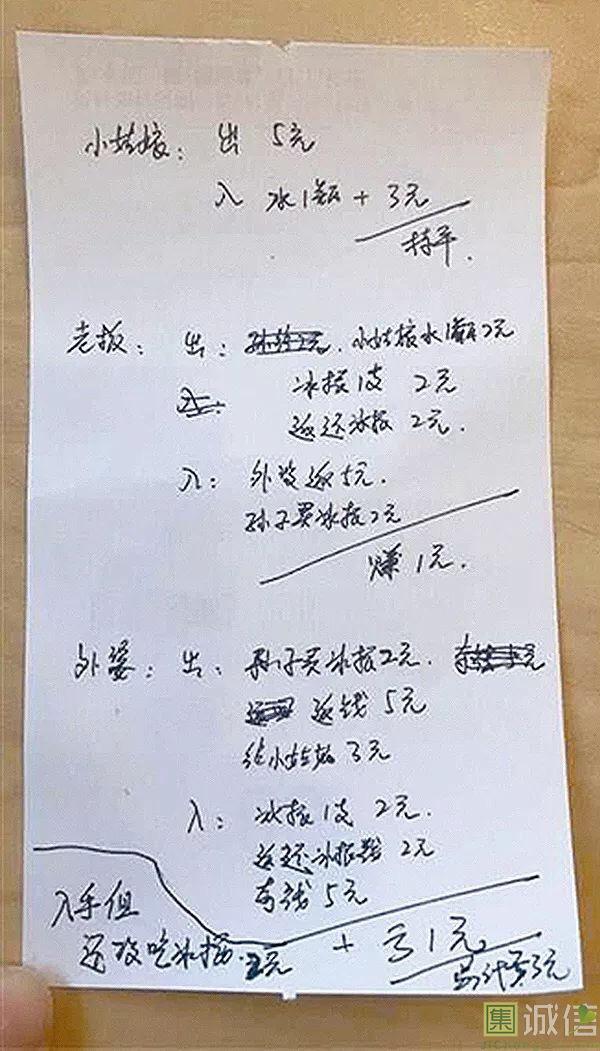 小姑娘： 出 5元
入 水1瓶 + 3元
持平.
老板： 出： 小姑娘水1瓶2元
冰棍1支 2元
返还冰棍 2元.
入： 外婆返5元.
孙子买冰棍2元
赚1元.
外婆： 出： 孙子买冰棍2元.
返钱 5元
给小姑娘 3元
入： 冰棍1支 2元.
返还冰棍 2元
5元
入手但
还没吃冰棍.2元
+ 亏1元
总计亏3元
集 诚信